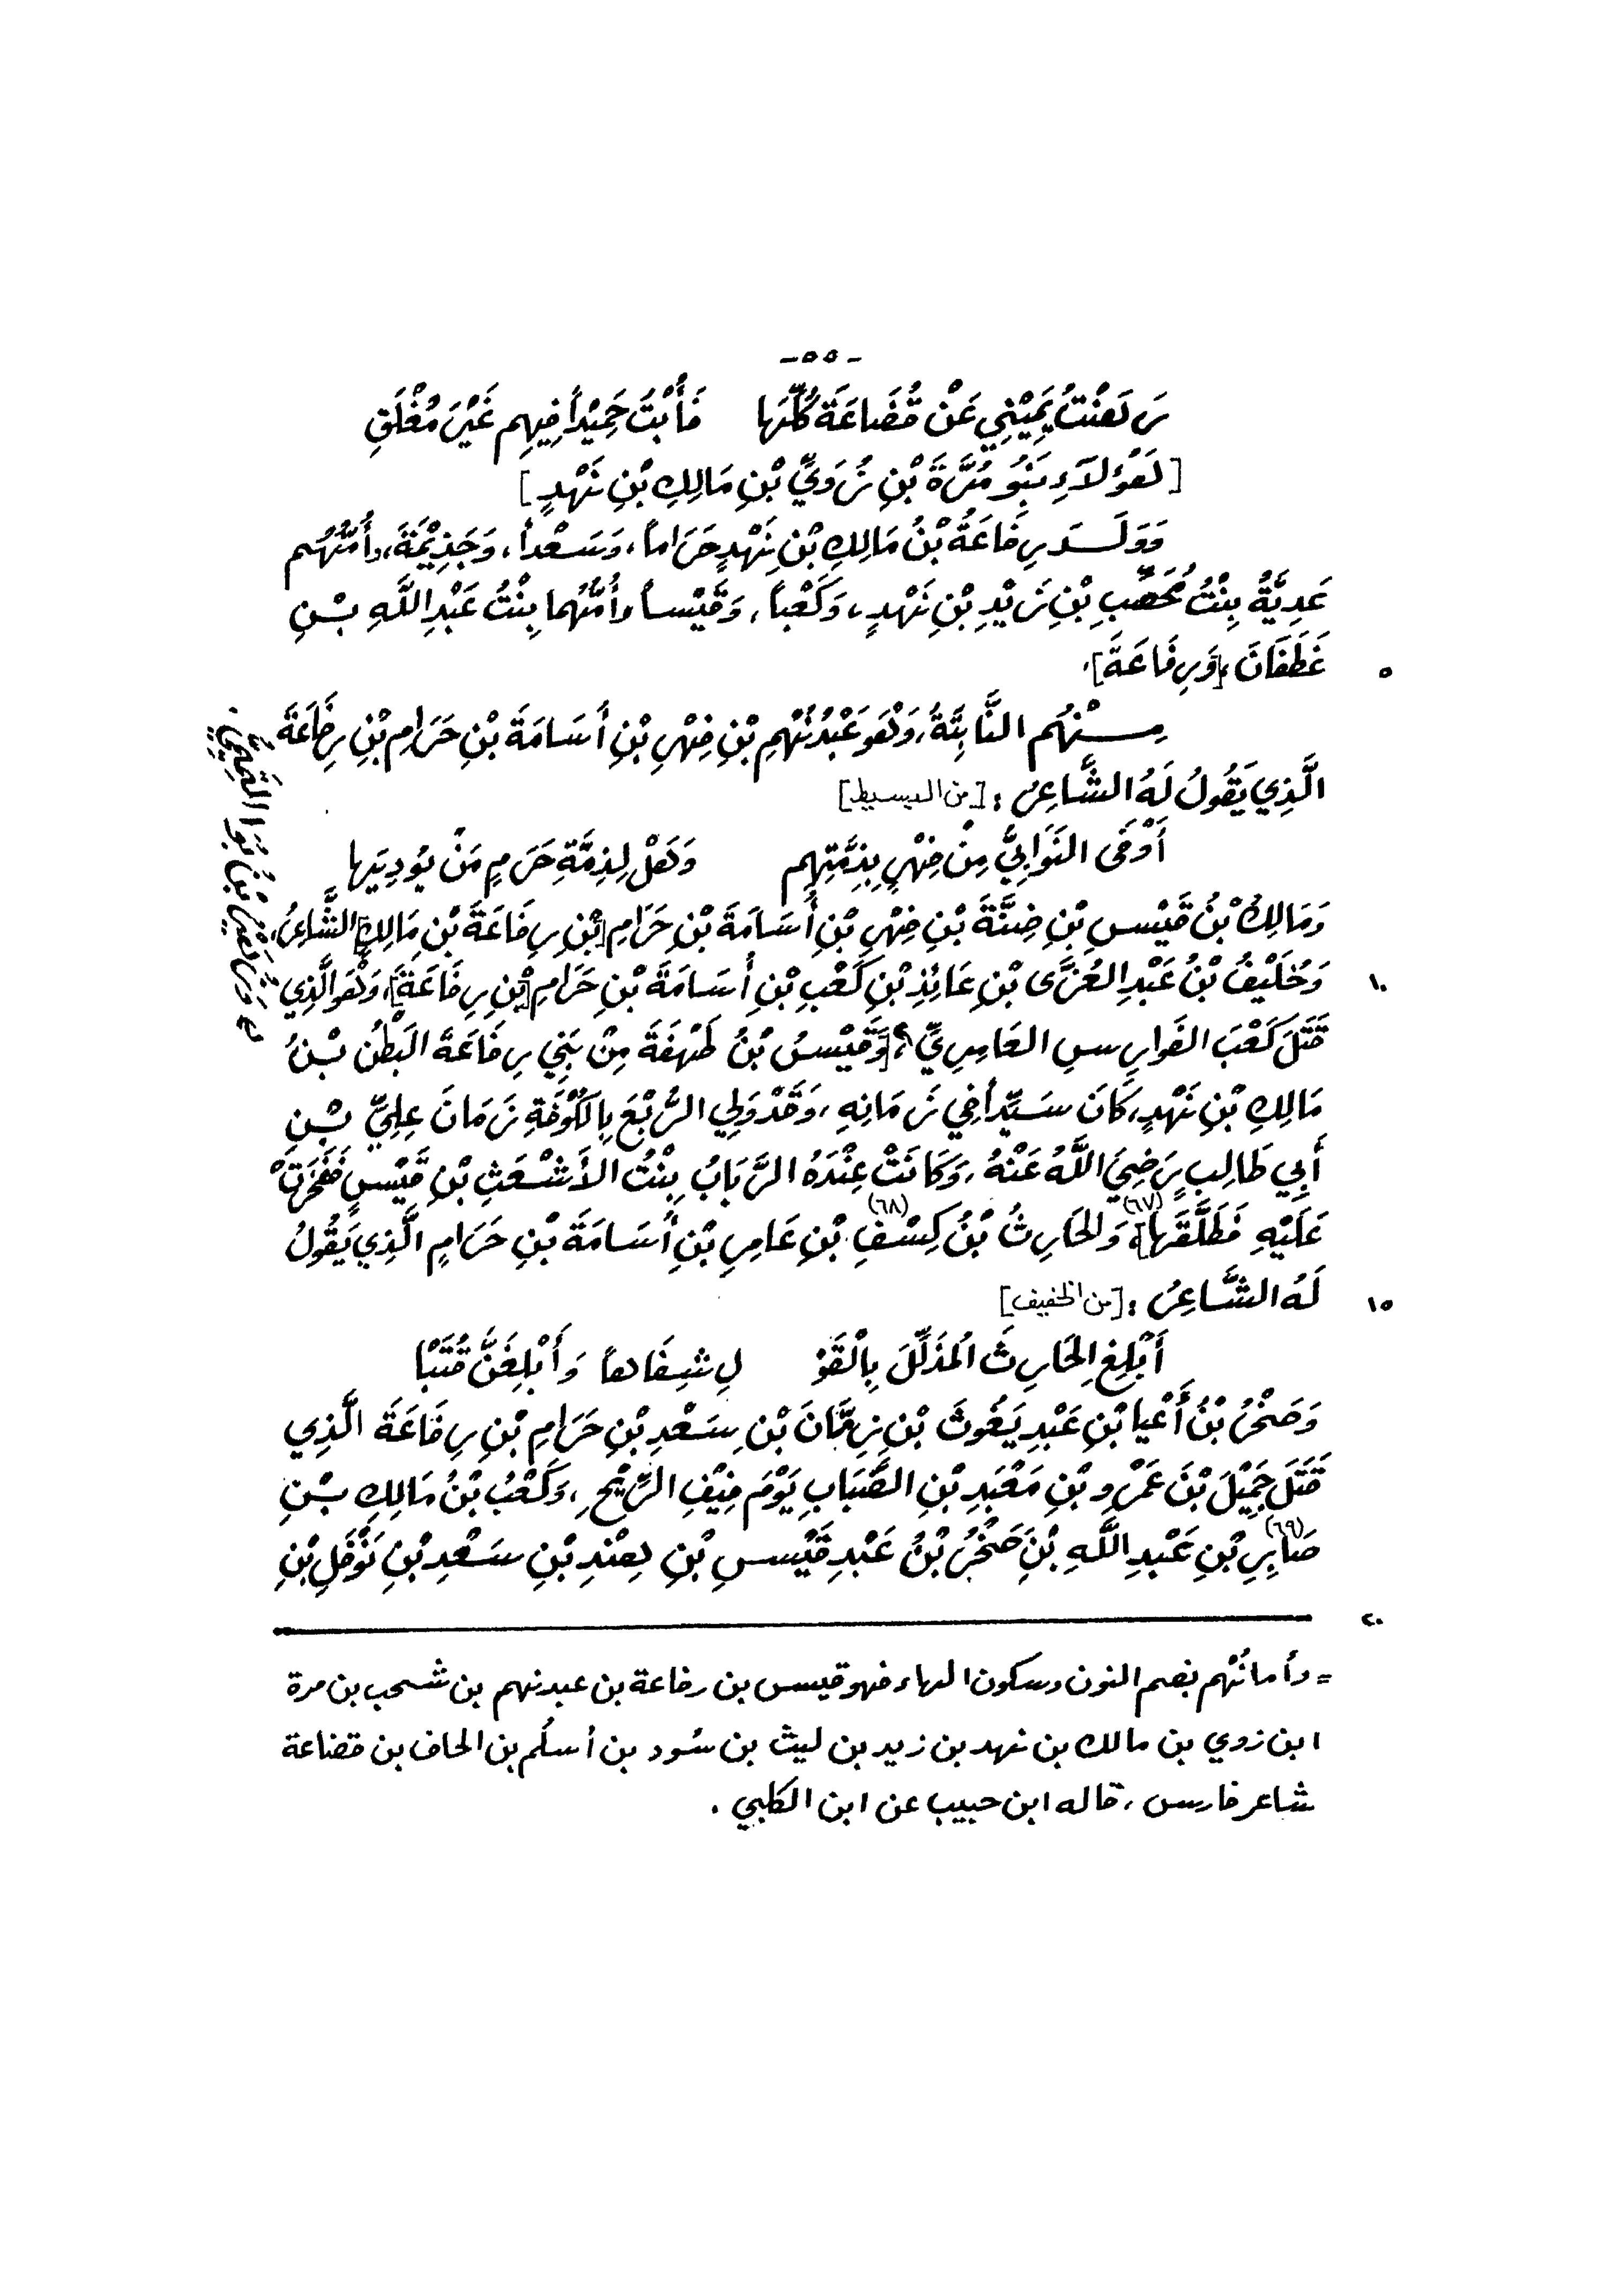 -٥٥-
رَهَنْتُ يَمِيْنِي عَنْ قُضَاعَةَ كُلِّهَا فَأُبْتَ حَمِيْداً فِيهِم غَيْرَ مُغْلَقِ
[هَؤُلاَءِ بَنُو مُرَّةَ بْنِ زُوَيِّ بْنِ مَالِكِ بْنِ نَهْدٍ]
وَوَلَدَ رِفَاعَةُ بْنُ مَالِكِ بْنِ نَهْدٍ حَرَاماً، وَسَعْداً، وَجَذِيْمَةَ، وأُمُّهُم
عَدِيَّةُ بِنْتُ مُحَصِّبِ بْنِ زَيْدِ بْنِ نَهْدٍ، وَكَعْباً، وَقَيْساً وأُمُّهُما بِنْتُ عَبْدِ اللَّهِ بْنِ
غَطَفَانَ، [وَرِفَاعَةَ]. ٥
مِنْهُم النَّابِتَةُ، وَهُوَ عَبْدُنُهْمِ بْنِ فِهْرِ بْنِ أُسَامَةَ بْنِ حَرَامِ بْنِ رِفَاعَةَ
الَّذِي يَقُولُ لَهُ الشَّاعِرُ: [من البسيط]
أَوْفَى النَوَابِيُّ مِنْ فِهْرٍ بِذِمَّتِهِم وَهَلْ لِذِمَّةِ حَرَمٍ مَنْ يُودِيَها
وَمَالِكُ بْنُ قَيْسِ بْنِ ضِنَّةَ بْنِ فِهْرِ بْنِ أُسَامَةَ بْنِ حَرَامِ [بْنِ رِفَاعَةَ بْنِ مَالِكِ] الشَّاعِرُ،
وَخُلَيْفُ بْنُ عَبْدِ العُزَّى بْنِ عَائِذِ بْنِ كَعْبِ بْنِ أُسَامَةَ بْنِ حَرَامِ [بْنِ رِفَاعَةَ]، وَهُوَ الَّذِي ١٠
قَتَلَ كَعْبَ الفَوارِسِ العَامِرِيِّ، [وَقَيْسُ بْنُ طَهْفَةَ مِنْ بَنِي رِفَاعَةَ البَطْنُ بْنُ
مَالِكِ بْنِ نَهْدٍ، كَانَ سَيِّداً فِي زَمَانِهِ، وَقَدْ وَلِي الرُّبْعَ بِالكُوْفَةِ زَمَانَ عِلِيِّ بْنِ
أَبِي طَالِبٍ رَضِيَ اللَّهُ عَنْهُ، وَكَانَتْ عِنْدَهُ الرَّبَابُ بِنْتُ الأَشْعَثِ بْنِ قَيْسٍ فَفَخَرَتْ
عَلَيْهِ فَطَلَّقَها] (٦٧) وَالحَارِثُ بْنُ كِسْفِ (٦٨) بْنِ عَامِرِ بْنِ أُسَامَةَ بْنِ حَرَامٍ الَّذِي يَقُولُ
لَهُ الشَّاعِرُ: [من الخفيف] ١٥
أَبْلِغِ الحَارِثَ المُذَلِّلَ بِالْقَوْ لِ شِفَاهاً وَأَبْلِغَنَّ قُتَبْا
وَصَخْرُ بْنُ أَعْيا بْنِ عَبْدِ يَغُوثَ بْنِ زِمَّانَ بْنِ سَعْدِ بْنِ حَرَامِ بْنِ رِفَاعَةَ الَّذِي
قَتَلَ جَمِيْلَ بْنَ عَمْرِو بْنِ مَعْبَدِ بْنِ الضِّبَابِ يَوْمَ فِيْفِ الرِّيْحِ، وَكَعْبُ بْنُ مَالِكِ بْنِ
صَابِرِ (٦٩) بْنِ عَبْدِ اللَّهِ بْنَ صَخْرُ بْنُ عَبْدِ قَيْسِ بْنِ هِنْدِ بْنِ سَعْدِ بْنِ نَوْفَلِ بْنِ
٢٠
= وأما نُهْم بضم النون وسكون الهاء فهو قيس بن رفاعة بن عبدنهم بن شحب بن مرة
ابن زوي بن مالك بن نهد بن زيد بن ليث بن سُود بن أسلُم بن الحاف بن قضاعة
شاعر فارس، قاله ابن حبيب عن ابن الكلبي.